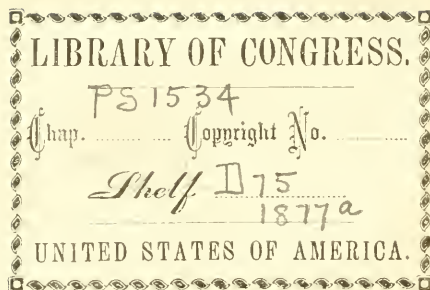 LIBRARY OF CONGRESS.
PS1534
Chap. ........ Copyright No. ........
Shelf D75
1877a
UNITED STATES OF AMERICA.